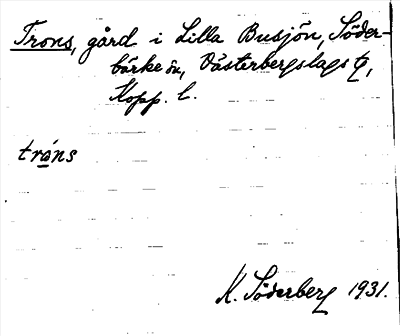 Trons, gård i Lilla Busjön, Söder-
bärke sn, Västerbergslags
Kopp. l.
tróns
K. Söderberg 1931.